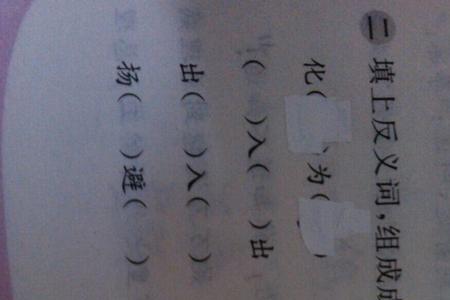 二 填上反义词,组成成
化( )为( )
( )入( )出
出( )入( )
扬( )避( )